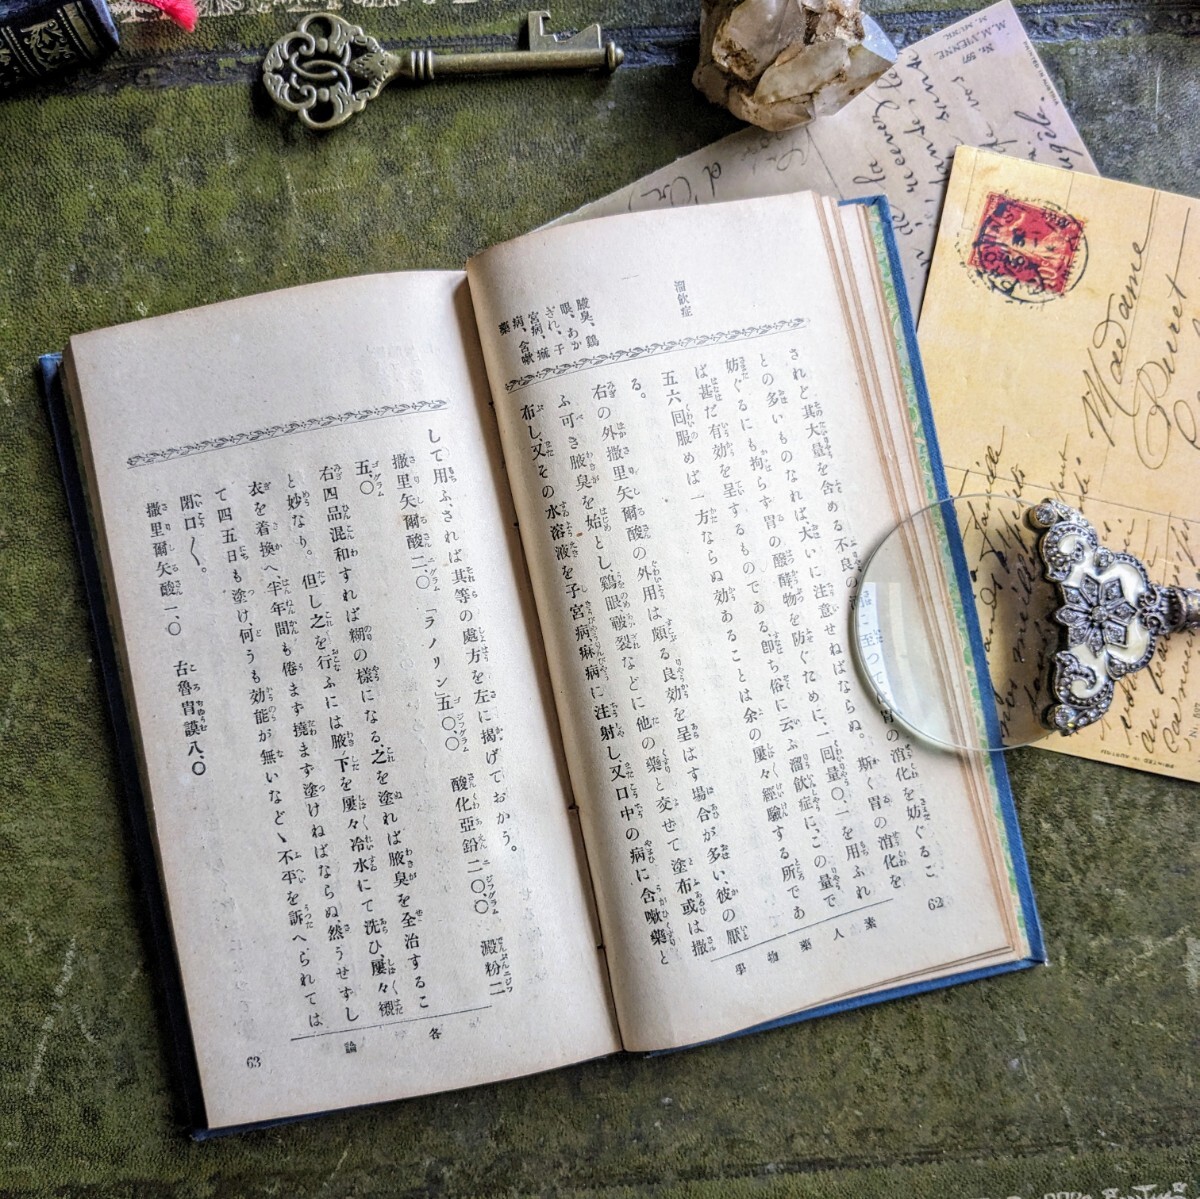 溜飮症
腋臭、鷄
眼、あか
ぎれ、子
宮病、痲
病、含嗽
藥
されど其大量を含める不良の
胃の消化を妨ぐるこ
との多いものなれば、大いに注意せねばならぬ。斯く胃の消化を
妨ぐるにも拘らず胃の醱酵物を防ぐために、一回量〇、一を用ふれ
ば甚だ有効を呈するものである、卽ち俗に云ふ溜飮症に、この量で
五六回服めば一方ならぬ効あることは余の屢々經驗する所であ
る。
右の外撒里矢爾酸の外用は頗る良効を呈はす場合が多い、彼の厭
ふ可き腋臭を始とし鷄眼、皸裂などに他の藥と交せて塗布或は撒
布し、又その水溶液を子宮病、痲病に注射し又口中の病に含嗽藥と
素人藥物學
62
して用ふ、されば其等の處方を左に揭げておかう。
撒里矢爾酸二、〇 「ラノリン」五〇、〇 酸化亞鉛二〇、〇 澱粉二
五、〇
右四品混和すれば糊の樣になる之を塗れば腋臭を全治するこ
と妙なり。但し之を行ふには腋下を屢々冷水にて洗ひ、屢々襯
衣を着換へ半年間も倦まず撓まず塗けねばならぬ、然うせずし
て四五日も塗け、何うも効能が無いなどゝ不平を訴へられては
閉口〱。
撒里爾矢酸一、〇 古魯胄謨八、〇
各論
63
M. M. VIENNE
M. MUNK
Nr. 597
Madame